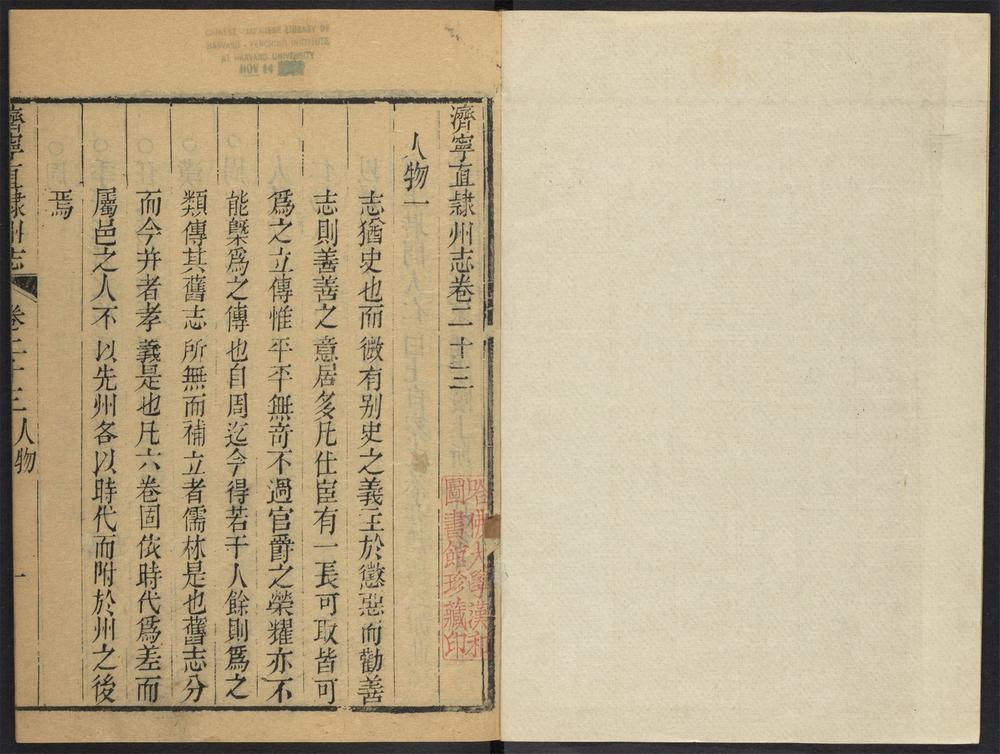 CHINESE - JAPANESE LIBRARY OF
HARVARD - YENCHING INSTITUTE
AT HARVARD UNIVERSITY
NOV 14
濟寧直隸州志卷二十三
哈佛大學漢和
圖書館珍藏印
人物一
志猶史也而微有别史之義主於懲惡而勸善
志則善善之意居多凡仕宦有一長可取皆可
爲之立傳惟平平無奇不過官爵之榮耀亦不
能槩爲之傳也自周迄今得若干人餘則爲之
類傳其舊志所無而補立者儒林是也舊志分
而今并者孝義是也凡六卷固依時代爲差而
屬邑之人不以先州各以時代而附於州之後
焉
濟寧直隸州志
卷二十三人物
一